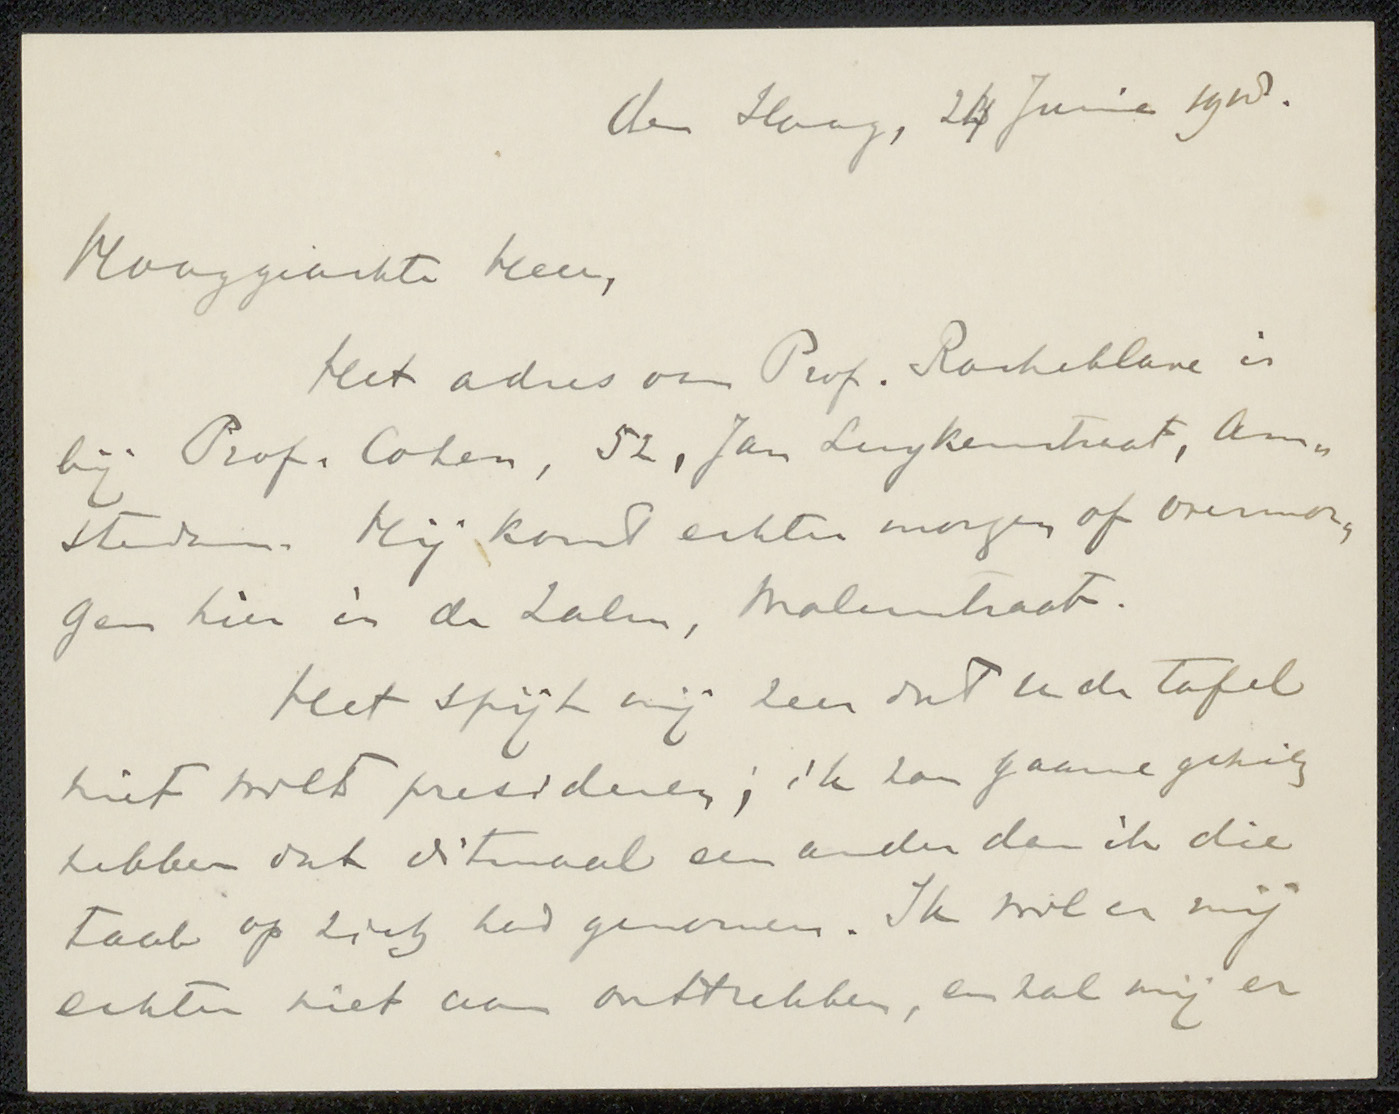 den Haag, 24 Junie 1918.
Hooggeachte Heer,
Het adres van Prof. Rocheblave is
bij Prof. Cohen, 52, Jan Luykenstraat, Am-
sterdam. Hij komt echter morgen of overmor-
gen hier in de Zalm, Molenstraat.
Het spijt mij zeer dat u de tafel
niet wilt presideren; ik zou gaarne gehad
hebben dat ditmaal een ander dan ik die
taak op zich had genomen. Ik wil er mij
echter niet aan onttrekken, en zal mij er